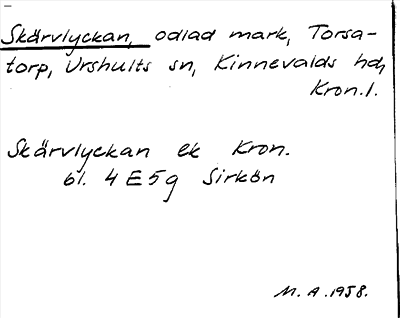 Skärvlyckan, odlad mark, Torsa-
torp, Urshults sn, Kinnevalds hd,
Kron.l.
Skärvlyckan ek Kron.
bl. 4 E 5 g Sirkön
M. A. 1958.